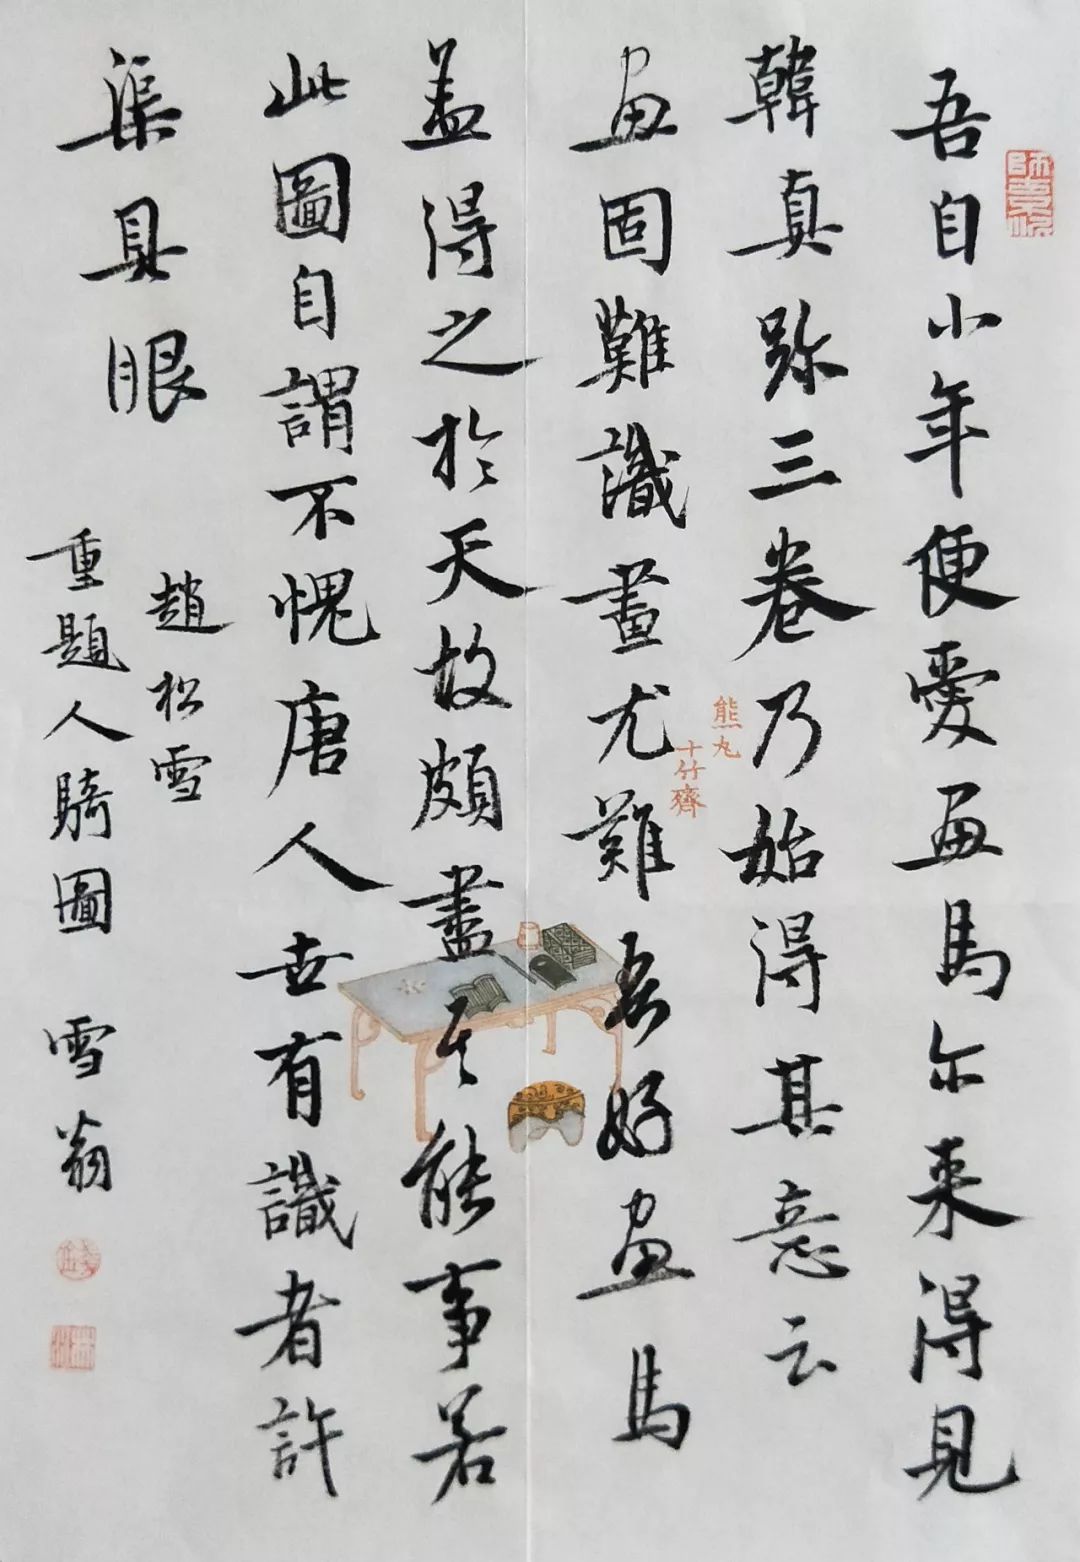 吾自小年便愛画馬尔来得見
韓真跡三卷乃始得其意云
画固難識畫尤難吾好画馬
盖得之於天故頗盡其能事若
此圖自謂不愧唐人世有識者許
渠具眼
趙松雪
重題人騎圖 雪翁
熊丸
十竹齋